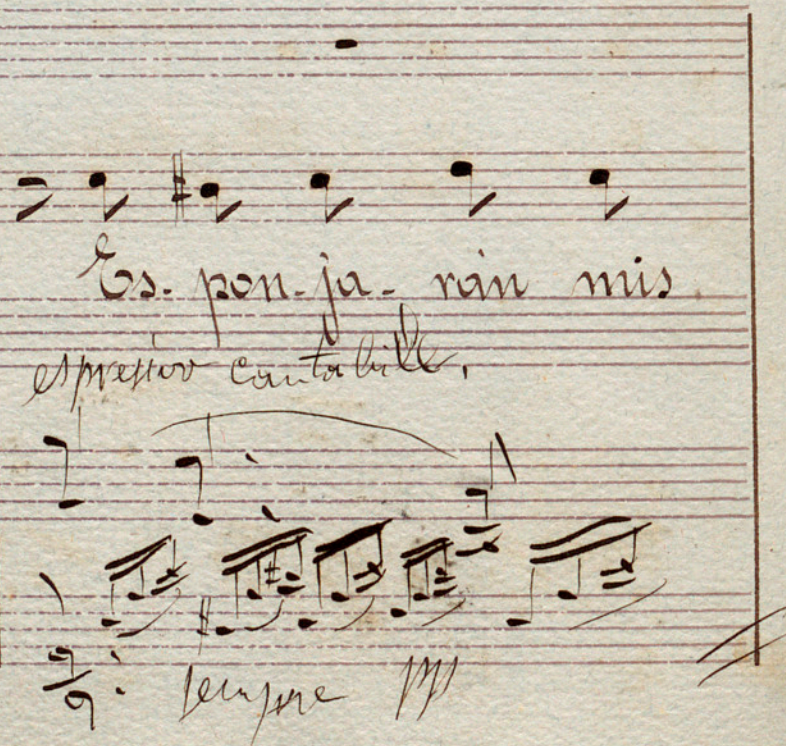 Es- pon- ja- rán mis
espressivo cantabille.
sempre ppp